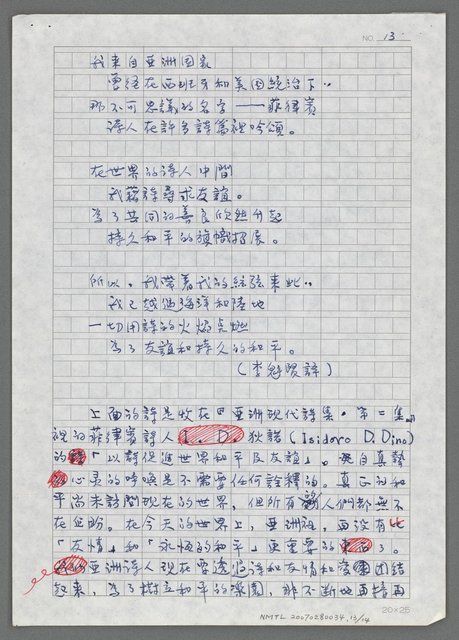 NO. 13
我來自亞洲国家
曾經在西班牙和美国統治下‥
那不可思議的名字——菲律賓
詩人在許多詩篇裡吟頌。
在世界的诗人中間
我藉詩尋求友誼。
為了共同的善良欣然升起
持久和平的旗幟招展。
所以，我带着我的絃弦來此‥
我已越過海洋和陸地
一切用詩的火焰点燃
為了友誼和持久的和平。
（李魁賢譯）
上面的詩是收在『亞洲現代詩集·第二集』
裡的菲律賓詩人 I. D. 狄諾（Isidoro D. Dino）
的「以詩促進世界和平及友誼」。自真摯
心灵的呼喚是不需要任何詮釋的。真正的和
平尚未訪問現在的世界，但所有人們都無不
在企盼。在今天的世界上，亞洲裡，再没有比
「友情」和「永恆的和平」更重要的了。
亞洲詩人現在要透過诗和友情和愛團結
起來，為了樹立和平的樂園，非不斷地再接再
20×25
NMTL 20070280034, 13/14